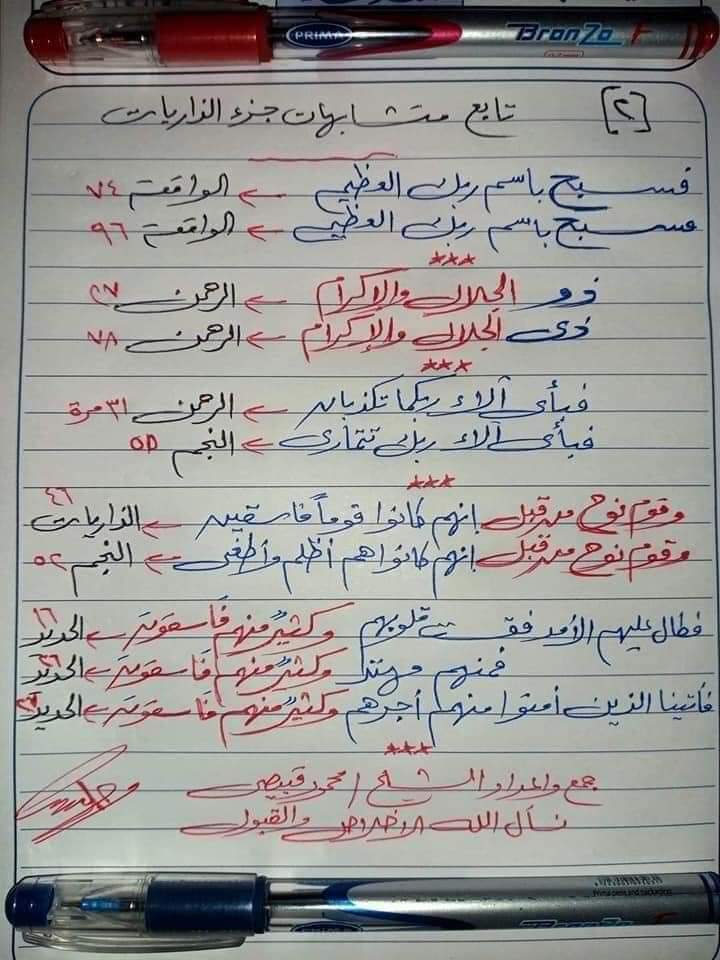 PRIMA BronZo F
[٢] تابع متشابهات جزء الذاريات
فسبح باسم ربك العظيم ← الواقعة ٧٤
فسبح باسم ربك العظيم ← الواقعة ٩٦
***
ذو الجلال والإكرام ← الرحمن ٢٧
ذى الجلال والإكرام ← الرحمن ٧٨
***
فبأى آلاء ربكما تكذبان ← الرحمن ٣١ مرة
فبأى آلاء ربك تتمارى ← النجم ٥٥
***
وقوم نوح من قبل إنهم كانوا قوماً فاسقين ← الذاريات ٤٦
وقوم نوح من قبل إنهم كانوا هم أظلم وأطغى ← النجم ٥٢
فطال عليهم الأمد فقست قلوبهم وكثيرٌ منهم فَاسقونَ ← الحديد ١٦
فمنهم مهتد وكثيرٌ منهم فَاسقونَ ← الحديد ٢٦
فأتينا الذين أمنوا منهم أجرهم وكثيرٌ منهم فَاسقونَ ← الحديد ٢٧
***
جمع وإعداد الشيخ / محمود قبيصى
نسأل الله الإخلاص والقبول
PRIMA BronZo F